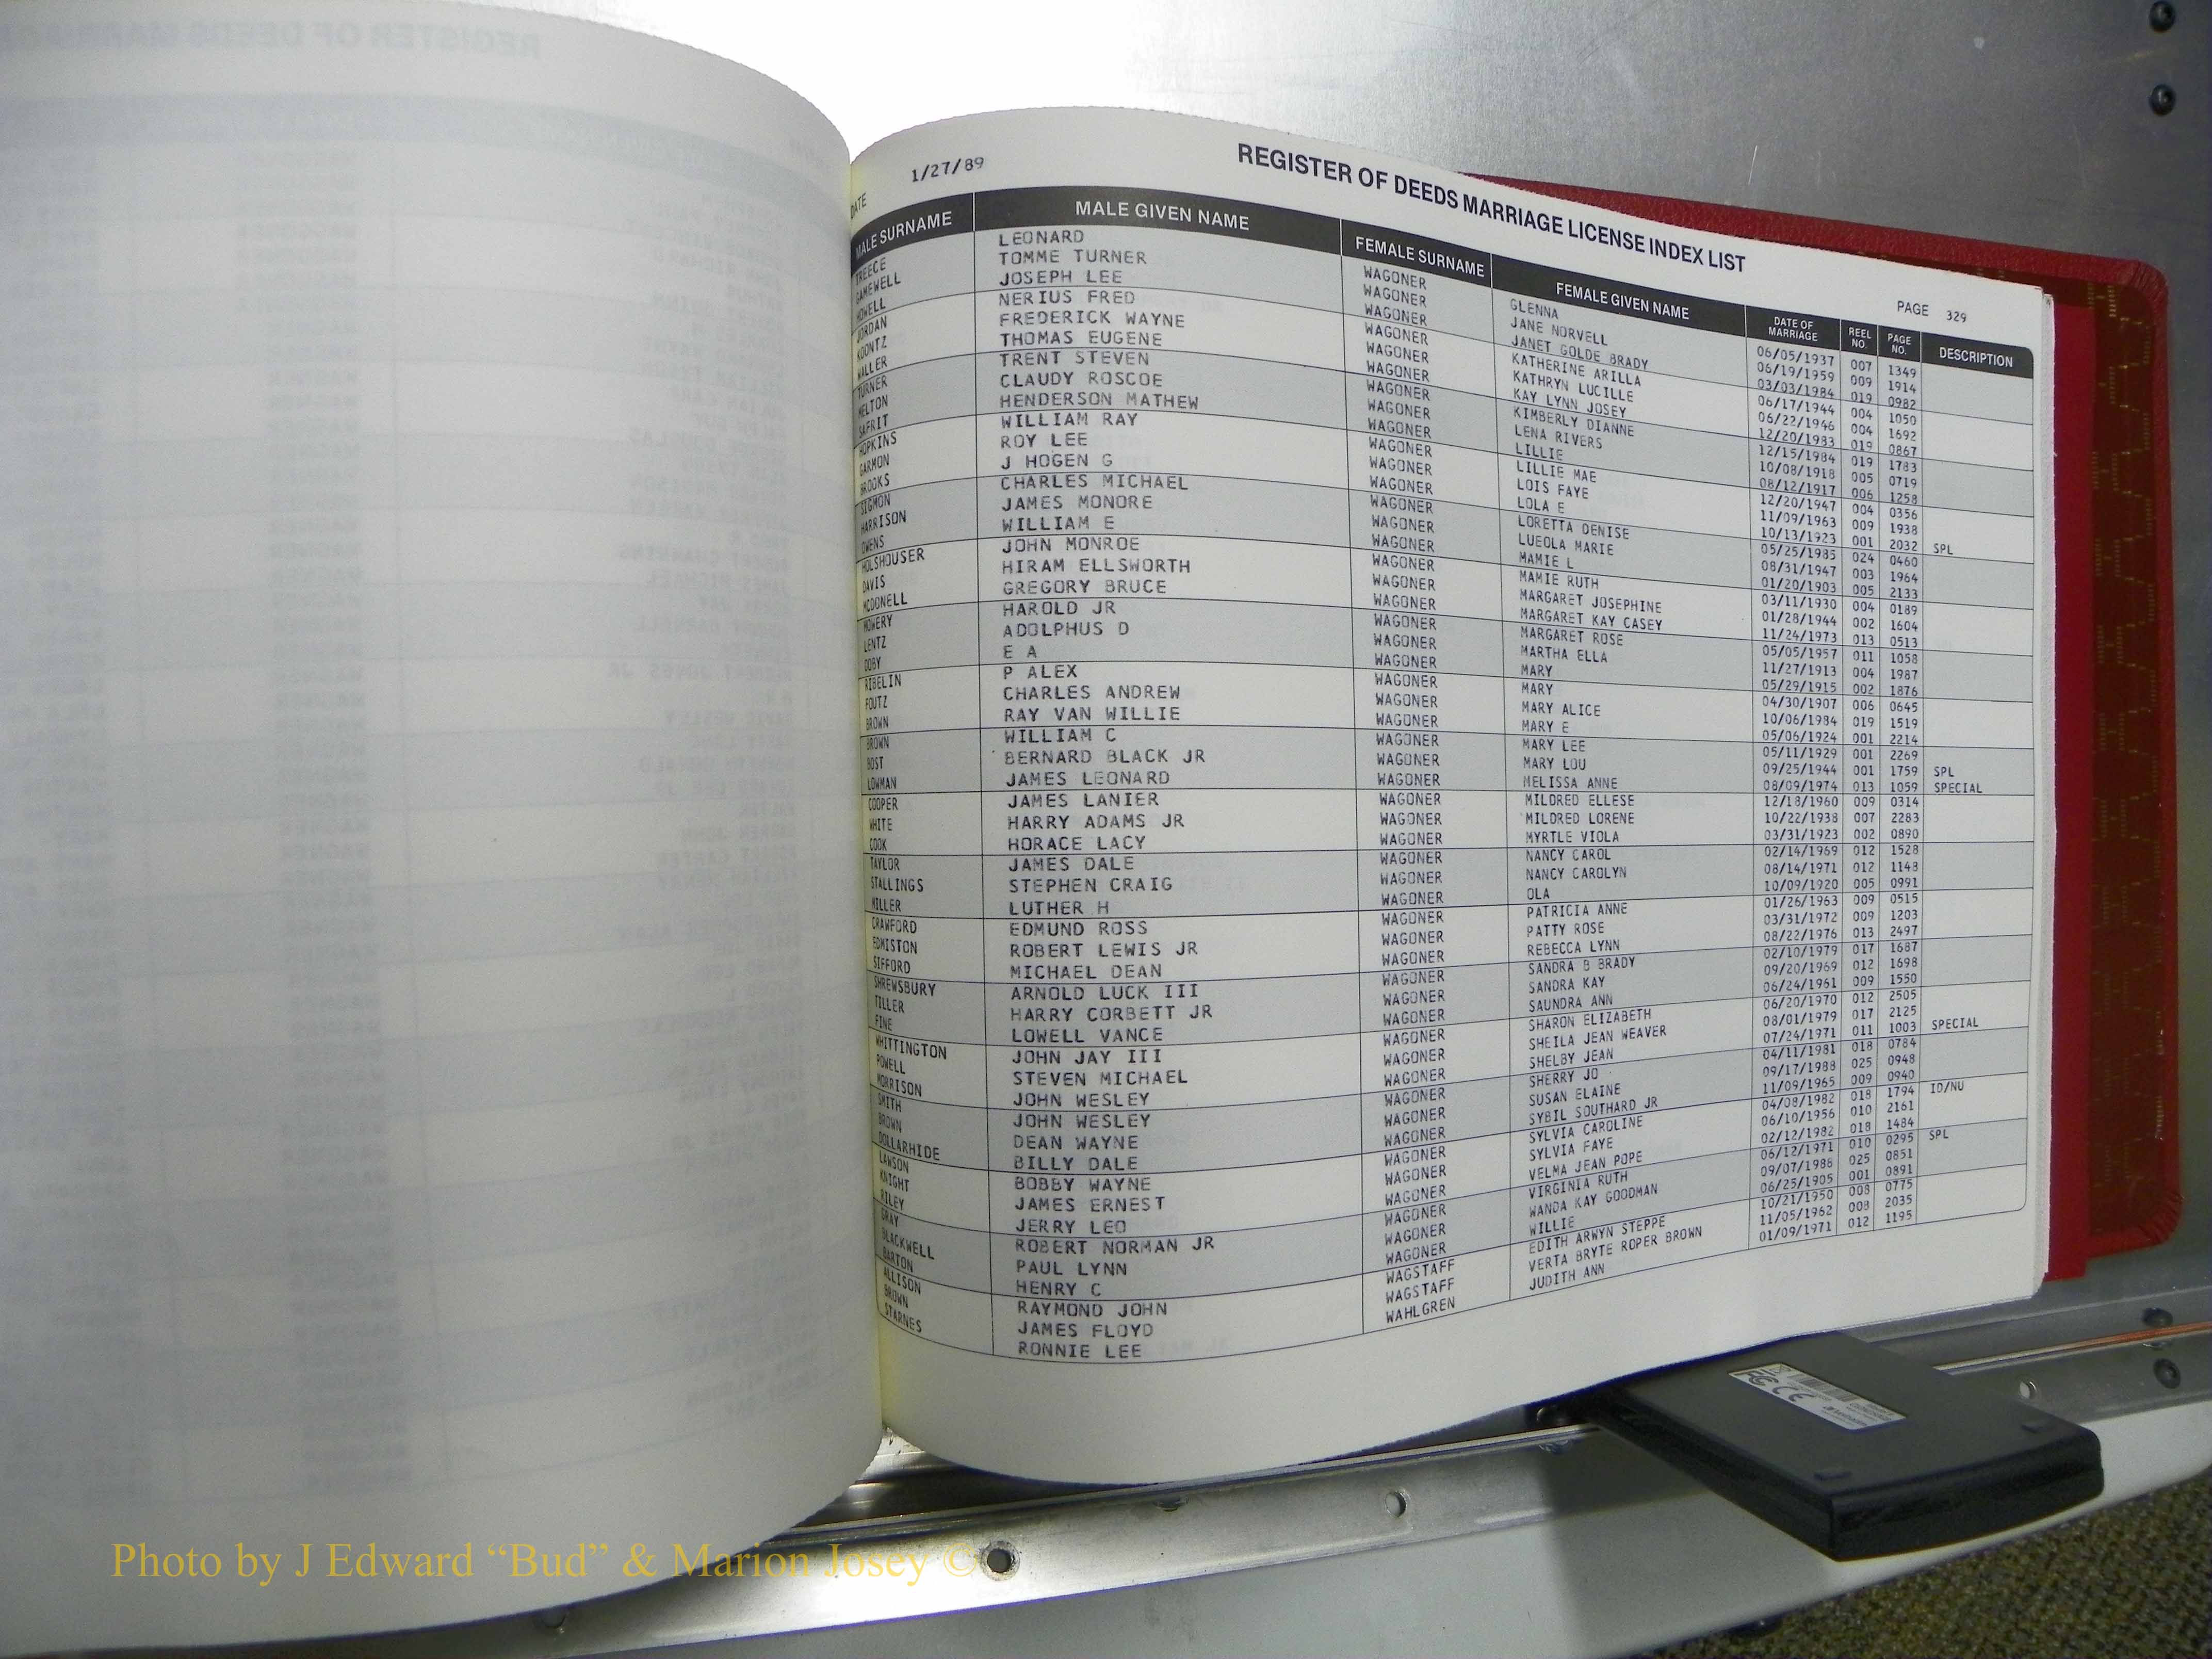 DATE 1/27/89
REGISTER OF DEEDS MARRIAGE LICENSE INDEX LIST
PAGE 329
MALE SURNAME MALE GIVEN NAME FEMALE SURNAME FEMALE GIVEN NAME DATE OF MARRIAGE REEL NO. PAGE NO. DESCRIPTION
TREECE LEONARD WAGONER GLENNA 06/05/1937 007 1349
GAMEWELL TOMME TURNER WAGONER JANE NORVELL 06/19/1959 009 1914
HOWELL JOSEPH LEE WAGONER JANET GOLDE BRADY 03/03/1984 019 0982
JORDAN NERIUS FRED WAGONER KATHERINE ARILLA 06/17/1944 004 1050
KOONTZ FREDERICK WAYNE WAGONER KATHRYN LUCILLE 06/22/1946 004 1692
WALLER THOMAS EUGENE WAGONER KAY LYNN JOSEY 12/20/1983 019 0867
TURNER TRENT STEVEN WAGONER KIMBERLY DIANNE 12/15/1984 019 1783
MELTON CLAUDY ROSCOE WAGONER LENA RIVERS 10/08/1918 005 0719
SAFRIT HENDERSON MATHEW WAGONER LILLIE 08/12/1917 006 1258
HOPKINS WILLIAM RAY WAGONER LILLIE MAE 12/20/1947 004 0356
GARMON ROY LEE WAGONER LOIS FAYE 11/09/1963 009 1938
BROOKS J HOGEN G WAGONER LOLA E 10/13/1923 001 2032 SPL
SIGMON CHARLES MICHAEL WAGONER LORETTA DENISE 05/25/1985 024 0460
HARRISON JAMES MONORE WAGONER LUEOLA MARIE 08/31/1947 003 1964
OWENS WILLIAM E WAGONER MAMIE L 01/20/1903 005 2133
HOLSHOUSER JOHN MONROE WAGONER MAMIE RUTH 03/11/1930 004 0189
DAVIS HIRAM ELLSWORTH WAGONER MARGARET JOSEPHINE 01/28/1944 002 1604
MCDONELL GREGORY BRUCE WAGONER MARGARET KAY CASEY 11/24/1973 013 0513
MOWERY HAROLD JR WAGONER MARGARET ROSE 05/05/1957 011 1058
LENTZ ADOLPHUS D WAGONER MARTHA ELLA 11/27/1913 004 1987
DOBY E A WAGONER MARY 05/29/1915 002 1876
RIBELIN P ALEX WAGONER MARY 04/30/1907 006 0645
FOUTZ CHARLES ANDREW WAGONER MARY ALICE 10/06/1984 019 1519
BROWN RAY VAN WILLIE WAGONER MARY E 05/06/1924 001 2214
BROWN WILLIAM C WAGONER MARY LEE 05/11/1929 001 2269
BOST BERNARD BLACK JR WAGONER MARY LOU 09/25/1944 001 1759 SPL
LOWMAN JAMES LEONARD WAGONER MELISSA ANNE 08/09/1974 013 1059 SPECIAL
COOPER JAMES LANIER WAGONER MILDRED ELLESE 12/18/1960 009 0314
WHITE HARRY ADAMS JR WAGONER MILDRED LORENE 10/22/1938 007 2283
COOK HORACE LACY WAGONER MYRTLE VIOLA 03/31/1923 002 0890
TAYLOR JAMES DALE WAGONER NANCY CAROL 02/14/1969 012 1528
STALLINGS STEPHEN CRAIG WAGONER NANCY CAROLYN 08/14/1971 012 1148
MILLER LUTHER H WAGONER OLA 10/09/1920 005 0991
CRAWFORD EDMUND ROSS WAGONER PATRICIA ANNE 01/26/1963 009 0515
EDMISTON ROBERT LEWIS JR WAGONER PATTY ROSE 03/31/1972 009 1203
SIFFORD MICHAEL DEAN WAGONER REBECCA LYNN 08/22/1976 013 2497
SHREWSBURY ARNOLD LUCK III WAGONER SANDRA B BRADY 02/10/1979 017 1687
TILLER HARRY CORBETT JR WAGONER SANDRA KAY 09/20/1969 012 1698
FINE LOWELL VANCE WAGONER SAUNDRA ANN 06/24/1961 009 1550
WHITTINGTON JOHN JAY III WAGONER SHARON ELIZABETH 06/20/1970 012 2505
POWELL STEVEN MICHAEL WAGONER SHEILA JEAN WEAVER 08/01/1979 017 2125
MORRISON JOHN WESLEY WAGONER SHELBY JEAN 07/24/1971 011 1003 SPECIAL
SMITH JOHN WESLEY WAGONER SHERRY JO 04/11/1981 018 0784
BROWN DEAN WAYNE WAGONER SUSAN ELAINE 09/17/1988 025 0948
DOLLARHIDE BILLY DALE WAGONER SYBIL SOUTHARD JR 11/09/1965 009 0940
LAWSON BOBBY WAYNE WAGONER SYLVIA CAROLINE 04/08/1982 018 1794 ID/NU
KNIGHT JAMES ERNEST WAGONER SYLVIA FAYE 06/10/1956 010 2161
RILEY JERRY LEO WAGONER VELMA JEAN POPE 02/12/1982 018 1484
GRAY ROBERT NORMAN JR WAGONER VIRGINIA RUTH 06/12/1971 010 0295 SPL
BLACKWELL PAUL LYNN WAGONER WANDA KAY GOODMAN 09/07/1988 025 0851
BARTON HENRY C WAGONER WILLIE 06/25/1905 001 0891
ALLISON RAYMOND JOHN WAGSTAFF EDITH ARWYN STEPPE 10/21/1950 008 0775
BROWN JAMES FLOYD WAGSTAFF VERTA BRYTE ROPER BROWN 11/05/1962 008 2035
STARNES RONNIE LEE WAHLGREN JUDITH ANN 01/09/1971 012 1195
FC CE
Photo by J Edward “Bud” & Marion Josey ©